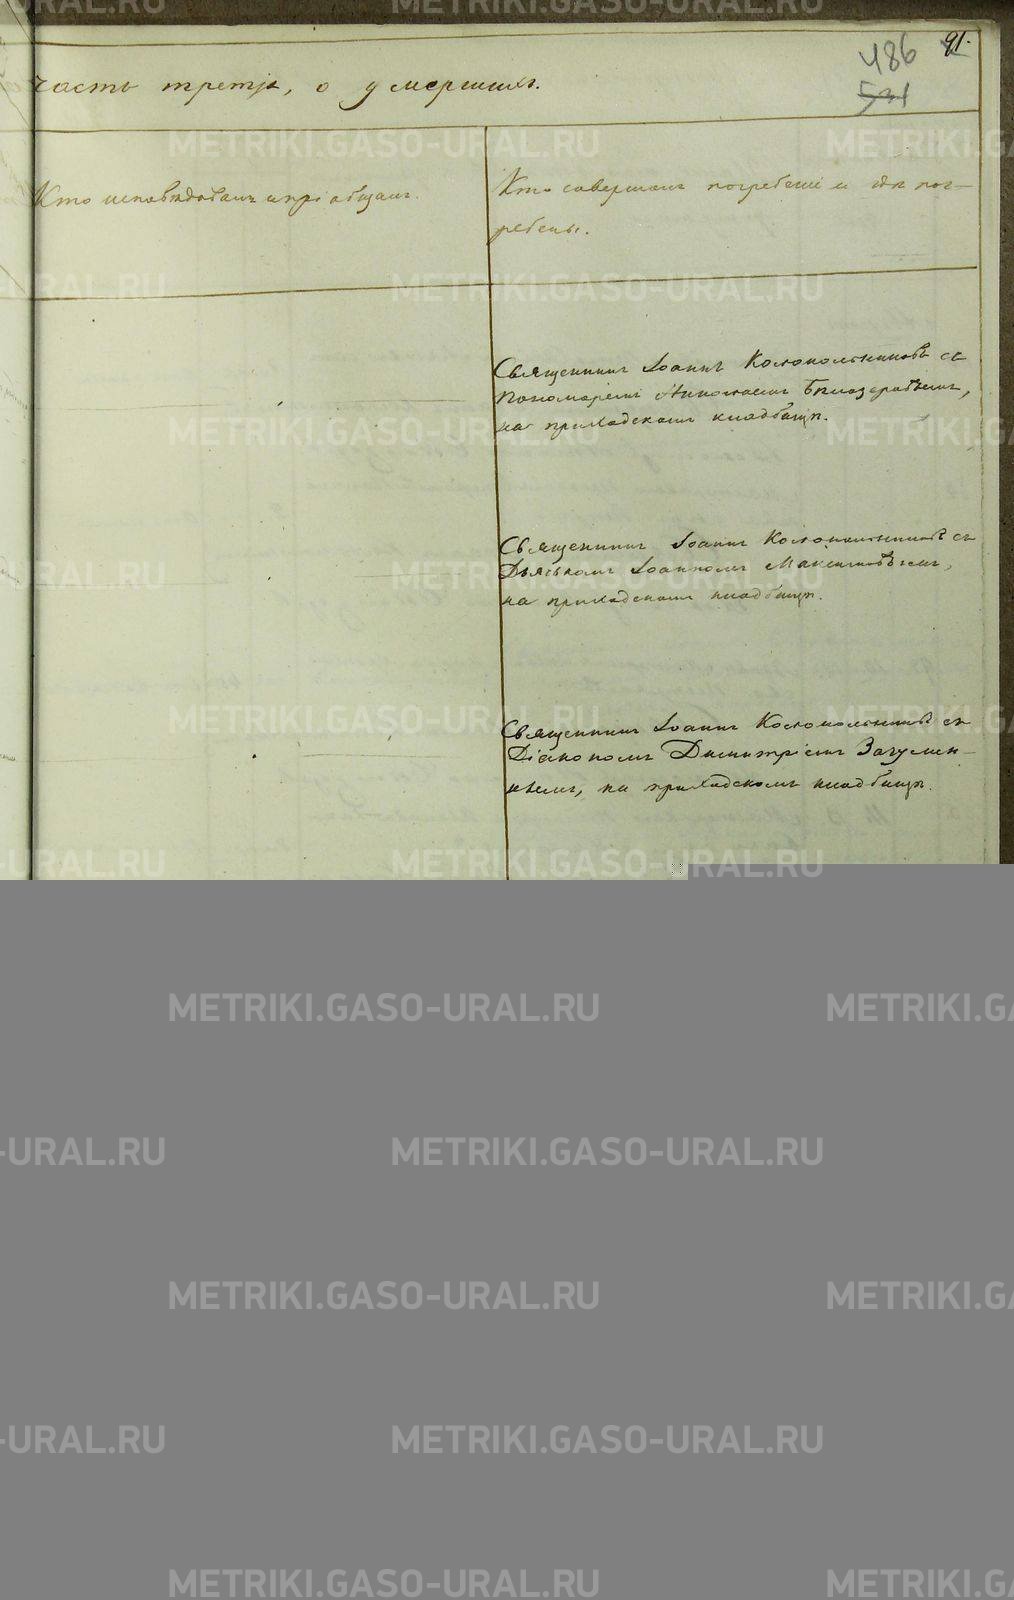 91.
486
531
часть третья, о умерших.
Кто исповѣдовалъ и пріобщалъ.
Кто совершалъ погребеніе и гдѣ пог-
ребены.
Священникъ Іоаннъ Колокольниковъ съ
Пономаремъ Николаемъ Бѣлозеровымъ,
на приходскомъ кладбищѣ.
Священникъ Іоаннъ Колокольниковъ съ
Дьячкомъ Іоанномъ Максимовымъ,
на приходскомъ кладбищѣ.
Священникъ Іоаннъ Колокольниковъ съ
Діакономъ Димитріемъ Загумен-
нымъ, на приходскомъ кладбищѣ.
METRIKI.GASO-URAL.RU